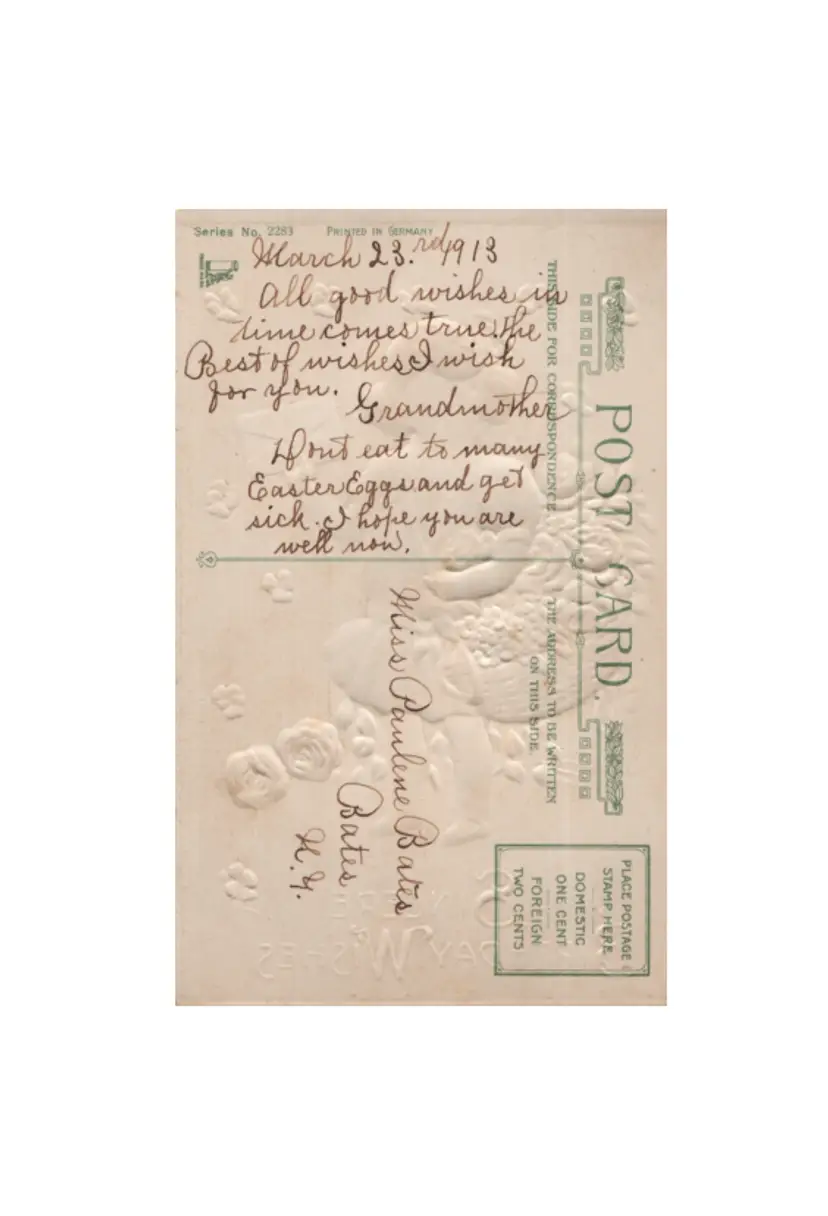 Series No. 2283 PRINTED IN GERMANY
March 23.rd 1913
All good wishes in
time comes true. the
Best of wishes I wish
for you.
Grandmother
Dont eat to many
Easter Eggs and get
sick. I hope you are
well now.
POST CARD.
THIS SIDE FOR CORRESPONDENCE.
THE ADDRESS TO BE WRITTEN
ON THIS SIDE.
PLACE POSTAGE
STAMP HERE
DOMESTIC
ONE CENT
FOREIGN
TWO CENTS
Miss Paulene Bates
Bates
N.Y.